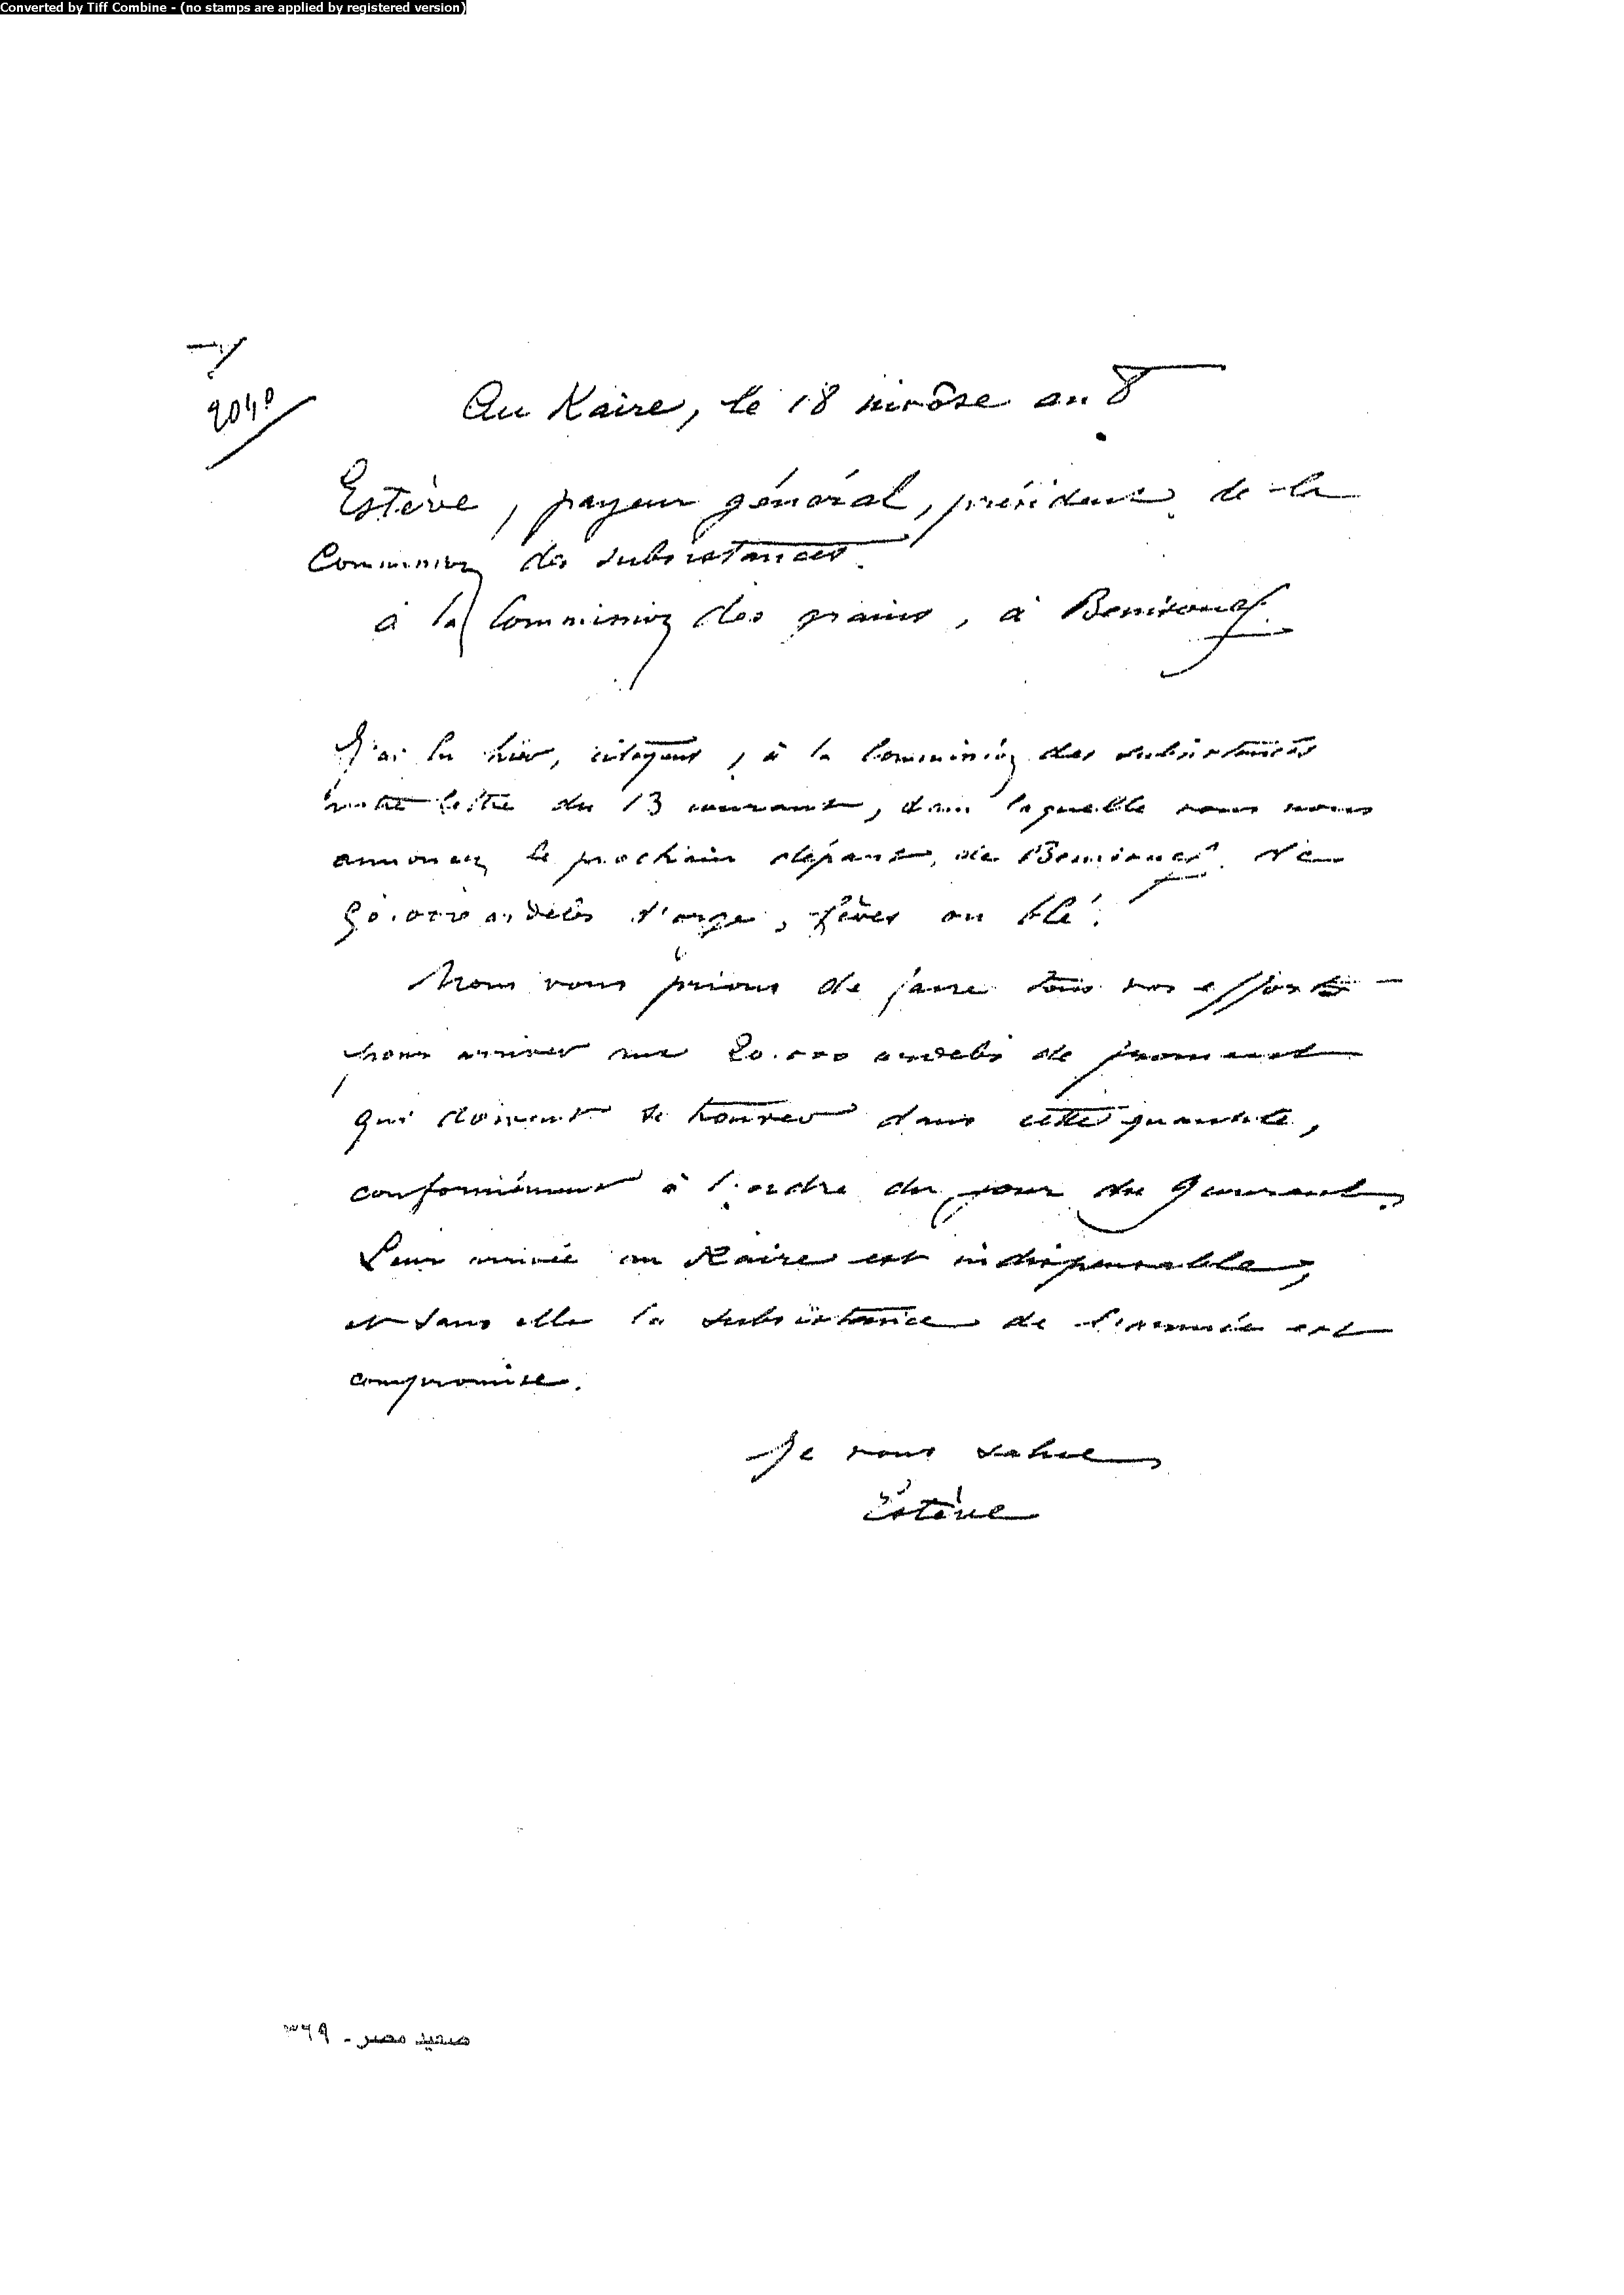 Converted by Tiff Combine - (no stamps are applied by registered version)
Au Kaire, le 18 nivôse an 8
Estève, payeur général, président de la
Commission des subsistances
à la Commission des grains, à Benisouef
J'ai lu hier, citoyens, à la Commission des subsistances
votre lettre du 13 courant, dans laquelle vous nous
annoncez le prochain départ, de Benisouef de
ardebs d'orge, fèves ou blé.
Nous vous prions de faire tous vos efforts
pour arriver 20.000 ardebs de froment
qui doivent se trouver dans cette quantité,
conformément à l'ordre du jour du 9 courant.
Leur arrivée au Kaire est indispensable,
et sans elle la subsistance de l'armée est
compromise.
Je vous salue
Estève
صعيد مصر - ٣٦٩